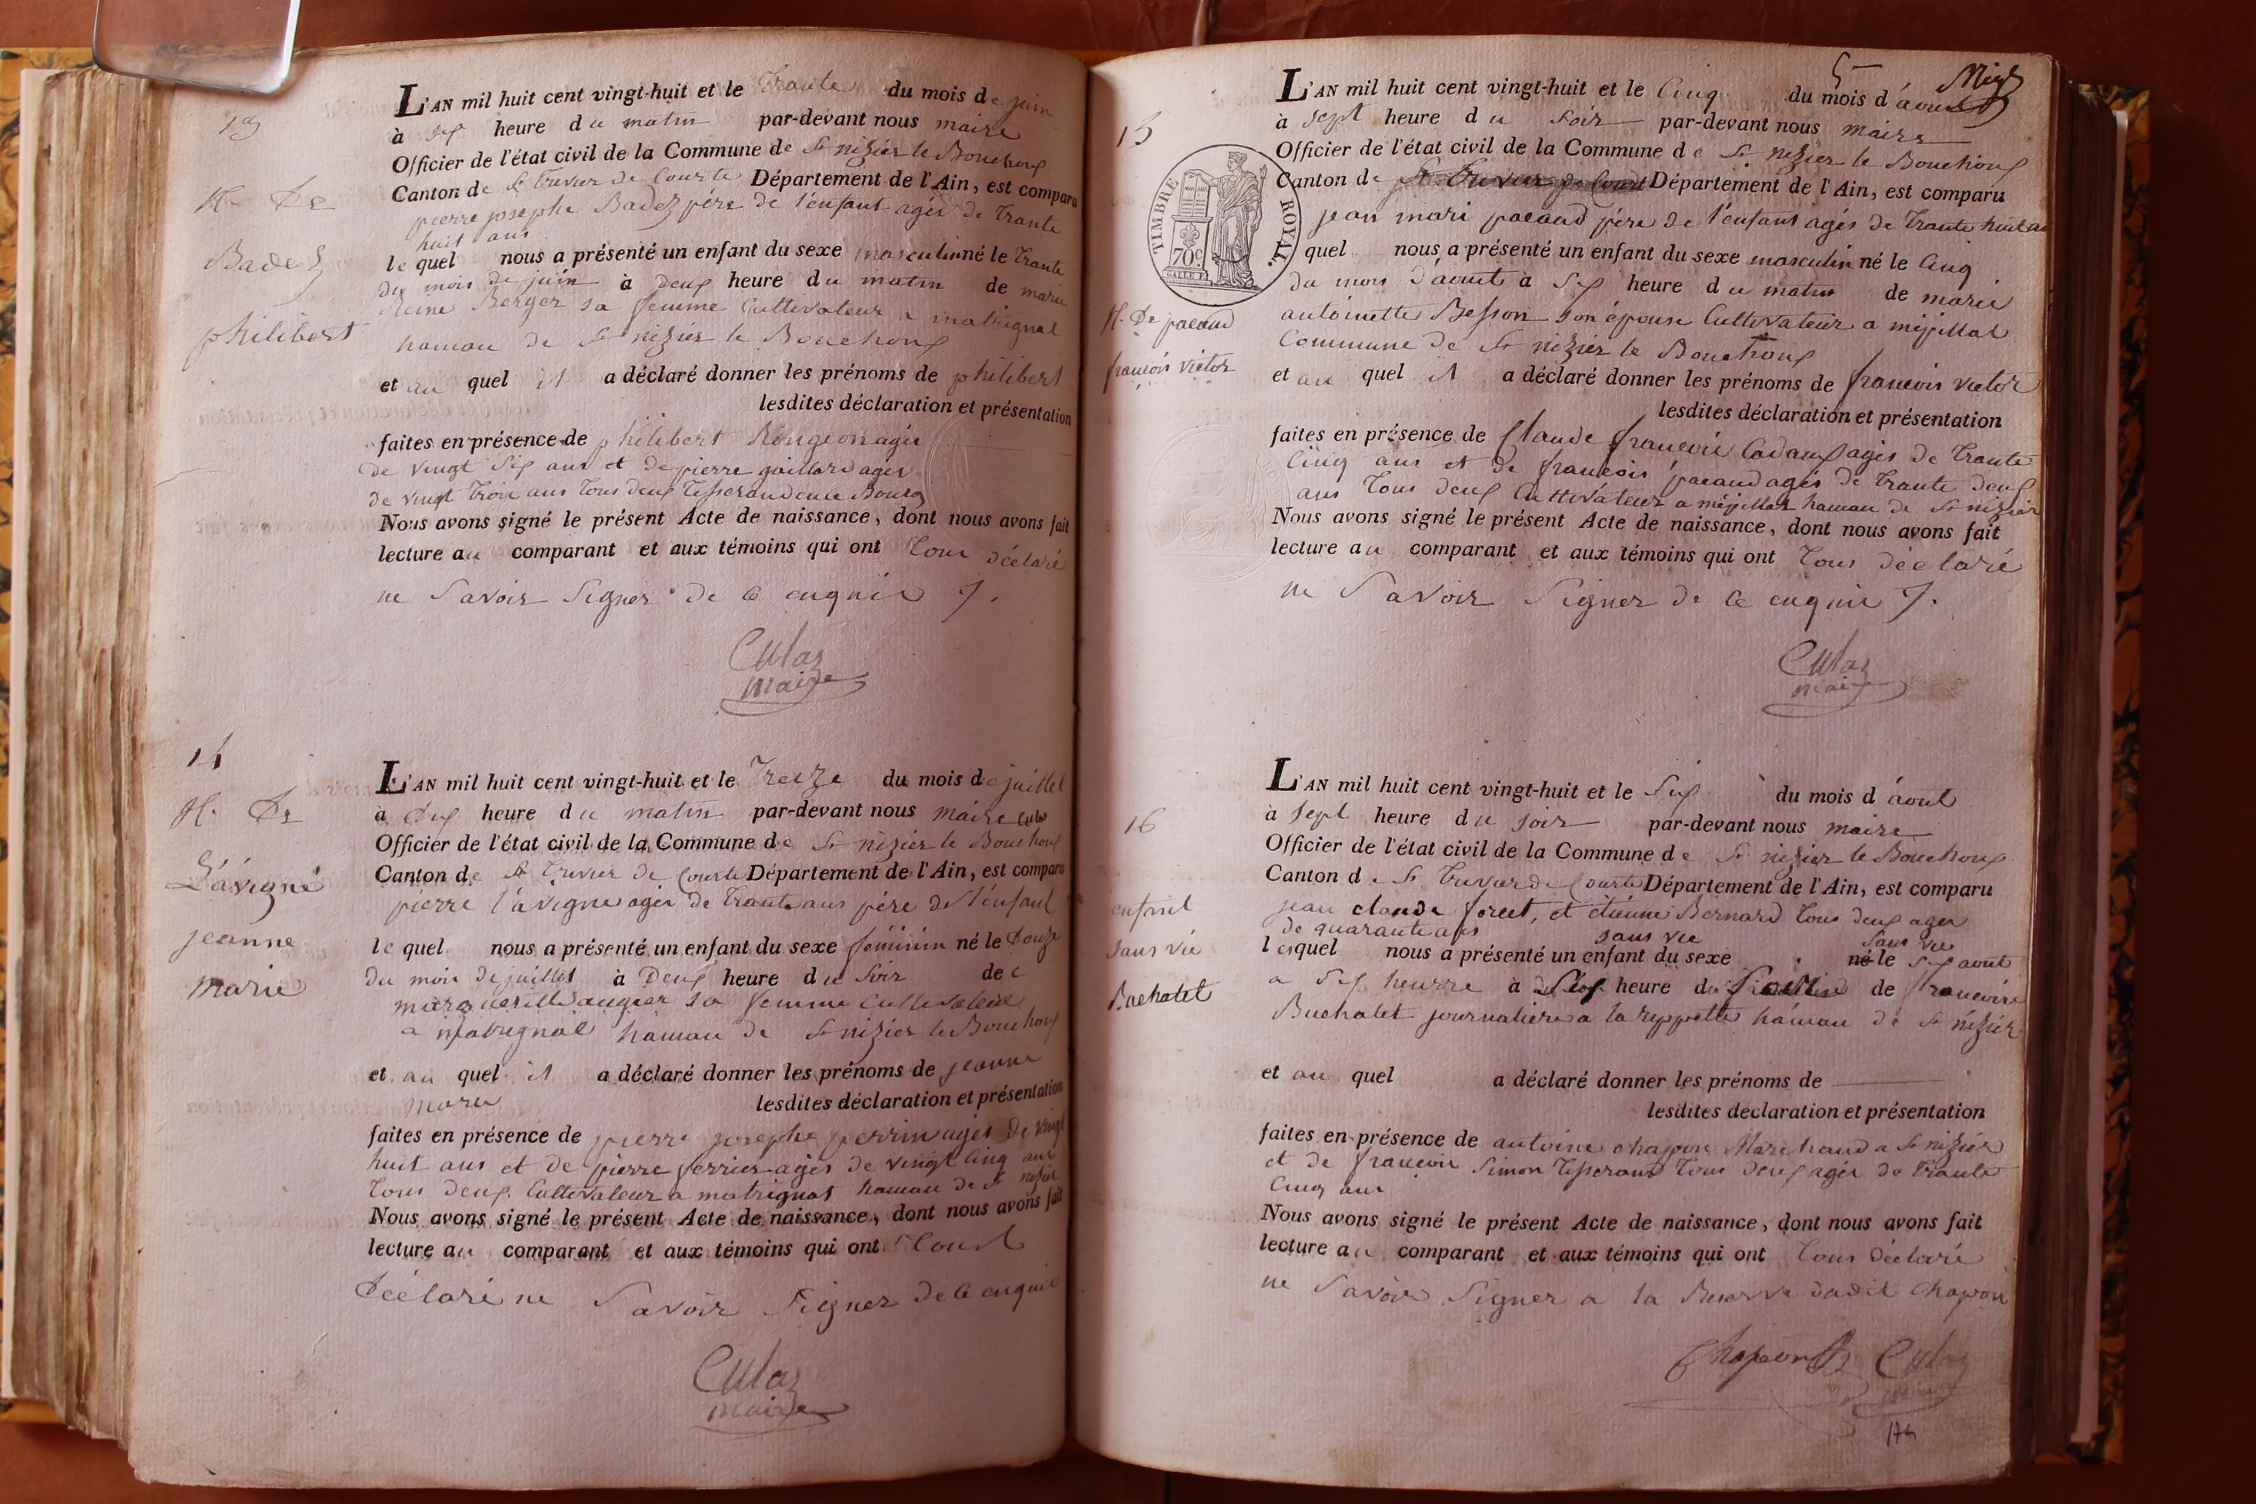 13
N. De
Badez
philibert
L'AN mil huit cent vingt-huit et le Trante du mois de juin
à six heure du matin par-devant nous maire
Officier de l'état civil de la Commune de St nizier le Bouchoux
Canton de St Trivier de Courte Département de l'Ain, est comparu
pierre josephe Badez père de l'enfant agés de Trante
huit ans
le quel nous a présenté un enfant du sexe masculin né le Trante
du mois de juin à Deux heure du matin de marie
Reine Berger sa femme Cultivateur a matrignal
hamau de St nizier le Bouchoux
et au quel il a déclaré donner les prénoms de philibert
lesdites déclaration et présentation
faites en présence de philibert Rongeon agés
de vingt six ans et de pierre gaillard agés
de vingt Trois ans Tous deux Tisserand
Nous avons signé le présent Acte de naissance, dont nous avons fait
lecture au comparant et aux témoins qui ont Tous déclaré
ne Savoir Signer de ce enquie
Culaz
maire
14
N. De
Lávigne
jeanne
marie
L'AN mil huit cent vingt-huit et le Treize du mois de juillet
à Dix heure du matin par-devant nous maire
Officier de l'état civil de la Commune de St nizier le Bouchoux
Canton de St Trivier de Courte Département de l'Ain, est comparu
pierre l'avigne agés de Trante ans père de l'enfant
le quel nous a présenté un enfant du sexe féminin né le Douze
du mois de juillet à Deux heure du soir de
margueritte augier sa femme Cultivateur
a matrignal hamau de St nizier le Bouchoux
et au quel il a déclaré donner les prénoms de jeanne
marie lesdites déclaration et présentation
faites en présence de pierre josephe perrin agés de vingt
huit ans et de pierre ferrier agés de vingt Cinq ans
Tous deux Cultivateur a matrignal hamau de St nizier
Nous avons signé le présent Acte de naissance, dont nous avons fait
lecture au comparant et aux témoins qui ont Tous
Déclaré ne Savoir Signer de ce enquie
Culaz
maire
5 Mig
15
TIMBRE ROYAL
70c
N. De pacaud
francois victor
L'AN mil huit cent vingt-huit et le Cinq du mois d'aout
à sept heure du soir par-devant nous maire
Officier de l'état civil de la Commune de St nizier le Bouchoux
Canton de St Trivier de Court Département de l'Ain, est comparu
jean mari pacaud père de l'enfant agés de Trante huit an
quel nous a présenté un enfant du sexe masculin né le Cinq
du mois d'aout à six heure du matin de marie
antoinette Besson son épouse Cultivateur a mépillat
Commune de St nizier le Bouchoux
et au quel il a déclaré donner les prénoms de francois victor
lesdites déclaration et présentation
faites en présence de Claude francois Cadaux agés de Trante
Cinq ans et de francois pacaud agés de Trante deux
ans Tous deux Cultivateur a mépillat hamau de St nizier
Nous avons signé le présent Acte de naissance, dont nous avons fait
lecture au comparant et aux témoins qui ont Tous déclaré
ne Savoir Signer de ce enquie
Culaz
maire
16
enfant
sans vie
Buchalet
L'AN mil huit cent vingt-huit et le Six du mois d'aout
à sept heure du soir par-devant nous maire
Officier de l'état civil de la Commune de St nizier le Bouchoux
Canton de St Trivier de Courte Département de l'Ain, est comparu
jean claude foret, et étienne Bernard Tous deux agés
de quarante ans sans vie sans vie
lesquel nous a présenté un enfant du sexe né le six aout
a Six heurre à heure du de francoise
Buchalet journaliere a la reppette hamau de St nizier
et au quel a déclaré donner les prénoms de
lesdites déclaration et présentation
faites en présence de antoine chapon Marchand a St nizier
et de francois Simon Tisserand Tous deux agés de Trante
Cinq ans
Nous avons signé le présent Acte de naissance, dont nous avons fait
lecture au comparant et aux témoins qui ont Tous déclaré
ne Savoir Signer a la Reserve dudit Chapon
Chapon Culaz